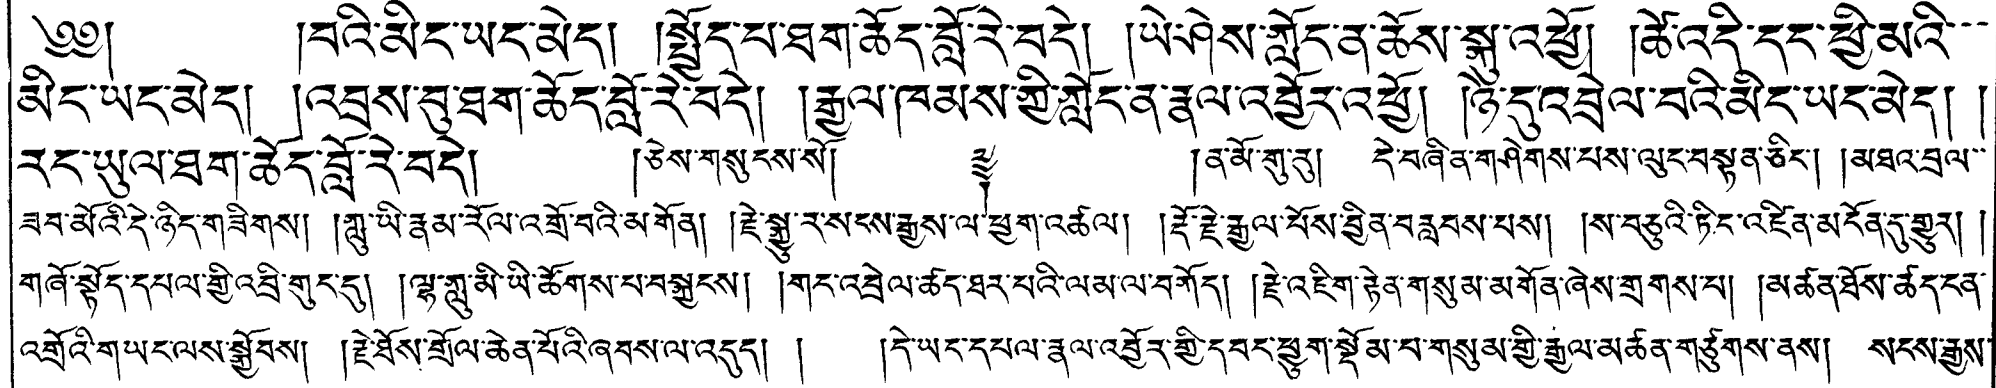 ༄༅། །བའི་མིང་ཡང་མེད། །སྤྲོད་པ་ཐག་ཆོད་བློ་རེ་བདེ། །ཡེ་ཤེས་ཀློང་ན་ཆོས་སྐུ་འཕྱོ། །ཚེ་འདི་དང་ཕྱི་མའི་
མིང་ཡང་མེད། །འབྲས་བུ་ཐག་ཆོད་བློ་རེ་བདེ། །རྒྱལ་ཁམས་ཀྱི་ཀློང་ན་རྣལ་འབྱོར་འཕྱོ། །ཉེ་དུ་འབྲེལ་བའི་མིང་ཡང་མེད། །
རང་ཡུལ་ཐག་ཆོད་བློ་རེ་བདེ། །ཅེས་གསུངས་སོ། ༈ །ན་མོ་གུ་རུ། དེ་བཞིན་གཤེགས་པས་ལུང་བསྟན་ཅིང་། །མཐའ་བྲལ་
ཟབ་མོའི་དེ་ཉིད་གཟིགས། །ཀླུ་ཡི་རྣམ་རོལ་འགྲོ་བའི་མགོན། །རྗེ་སྐྱུ་ར་སངས་རྒྱས་ལ་ཕྱག་འཚལ། །རྡོ་རྗེ་རྒྱལ་པོས་བྱིན་བརླབས་པས། །ས་བཅུའི་ཏིང་འཛིན་མངོན་དུ་གྱུར། །
གཞོ་སྟོད་དཔལ་གྱི་འབྲི་གུང་དུ། །ལྷ་ཀླུ་མི་ཡི་ཚོགས་པ་བསྐྱངས། །གང་འབྲེལ་ཚད་ཐར་པའི་ལམ་ལ་བཀོད། །རྗེ་འཇིག་རྟེན་གསུམ་མགོན་ཞེས་གྲགས་པ། །མཚན་ཐོས་ཚད་ངན་
འགྲོའི་གཡང་ལས་སྐྱོབས། །རྗེ་ཐོས་གྲོལ་ཆེན་པོའི་ཞབས་ལ་འདུད། ། །དེ་ཡང་དཔལ་རྣལ་འབྱོར་གྱི་དབང་ཕྱུག་སྡོམ་པ་གསུམ་གྱི་རྒྱལ་མཚན་གཙུགས་ནས། སངས་རྒྱས་